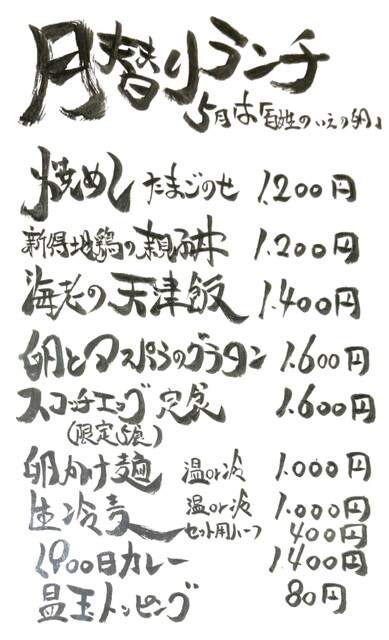 月替りランチ
5月は「百姓のいえの卵」
焼めし たまごのせ 1.200円
新得地鶏の親子丼 1.200円
海老の天津飯 1.400円
卵とアスパラのグラタン 1.600円
スコッチエッグ定食 1.600円
(限定5食)
卵かけ麺 温or冷 1.000円
生冷麦 温or冷 1.000円
セット用ハーフ 400円
1900日カレー 1.400円
温玉トッピング 80円